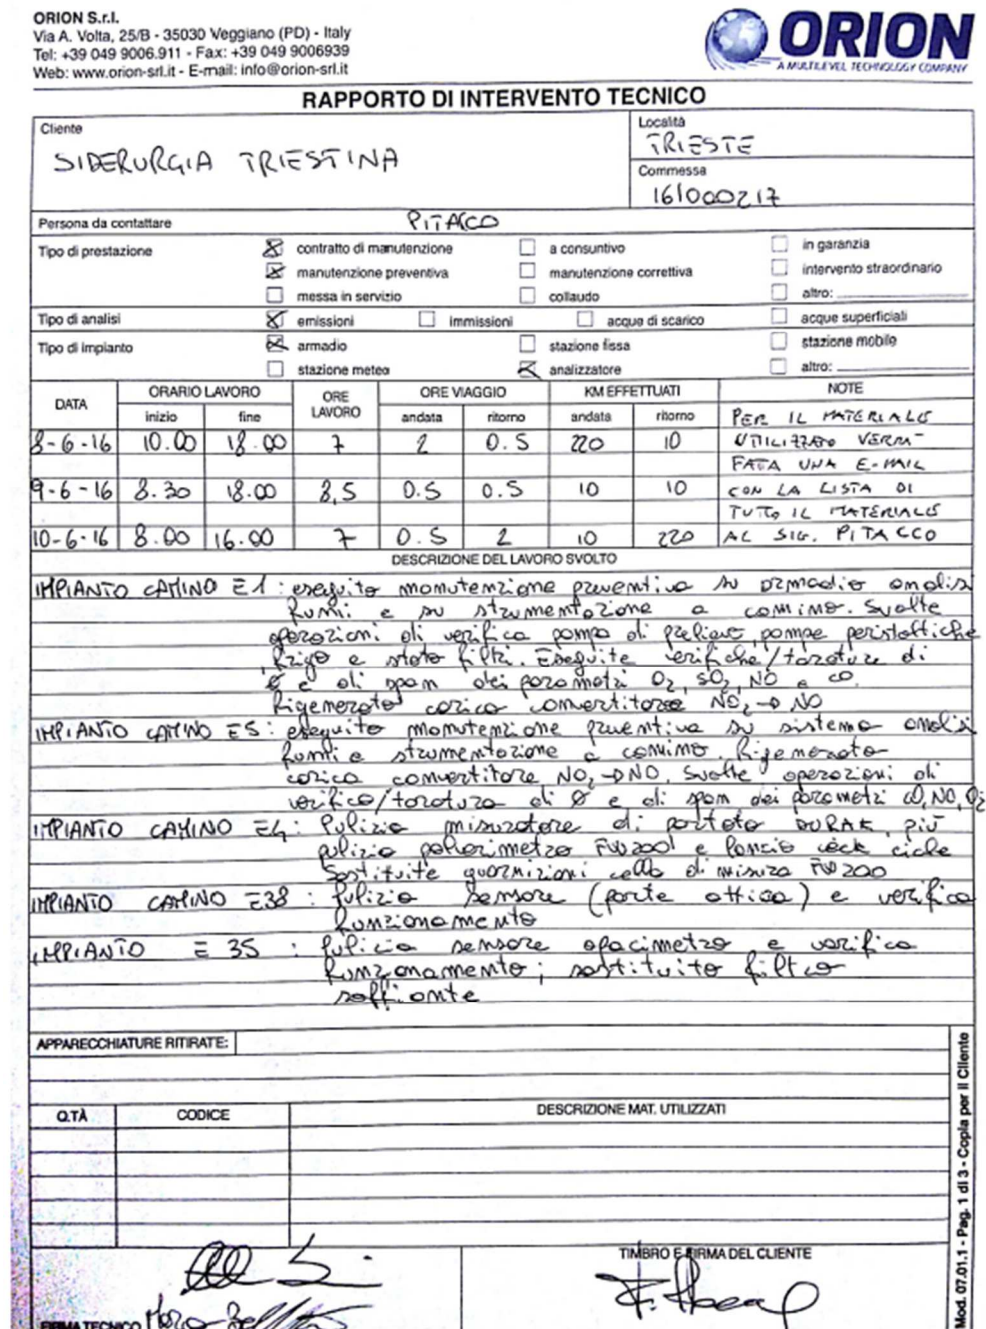 ORION S.r.l.
Via A. Volta, 25/B - 35030 Veggiano (PD) - Italy
Tel: +39 049 9006.911 - Fax: +39 049 9006939
Web: www.orion-srl.it - E-mail: info@orion-srl.it
ORION
A MULTILEVEL TECHNOLOGY COMPANY
RAPPORTO DI INTERVENTO TECNICO
Cliente
SIDERURGIA TRIESTINA
Località
TRIESTE
Commessa
16/000217
Persona da contattare PITACCO
Tipo di prestazione contratto di manutenzione a consuntivo in garanzia
manutenzione preventiva manutenzione correttiva intervento straordinario
messa in servizio collaudo altro:
Tipo di analisi emissioni immissioni acque di scarico acque superficiali
Tipo di impianto armadio stazione fissa stazione mobile
stazione meteo analizzatore altro:
DATA ORARIO LAVORO ORE LAVORO ORE VIAGGIO KM EFFETTUATI NOTE
inizio fine andata ritorno andata ritorno PER IL MATERIALE
8-6-16 10.00 18.00 7 2 0.5 220 10 UTILIZZATO VERRA'
FATA UNA E-MAIL
9-6-16 8.30 18.00 8,5 0.5 0.5 10 10 CON LA LISTA DI
TUTTO IL MATERIALE
10-6-16 8.00 16.00 7 0.5 2 10 220 AL SIG. PITACCO
DESCRIZIONE DEL LAVORO SVOLTO
IMPIANTO CAMINO E1: eseguito manutenzione preventiva su armadio analisi
fumi e su strumentazione a camino. Svolte
operazioni di verifica pompa di prelievo, pompe peristaltiche
, frigo e stato filtri. Eseguite verifiche/tarature di
Ø e di span dei parametri O2, SO2, NO e CO.
Rigenerato carico convertitore NO2 → NO
IMPIANTO CAMINO E5: eseguito manutenzione preventiva su sistema analisi
fumi e strumentazione a camino. Rigenerato
carico convertitore NO2 → NO. Svolte operazioni di
verifica/taratura di Ø e di span dei parametri CO, NO, O2
IMPIANTO CAMINO E4: Pulizia misuratore di portata DURAK, più
pulizia polverimetro FW200 e
Sostituite guarnizioni cella di misura FW200
IMPIANTO CAMINO E38: Pulizia sensore (parte ottica) e verifica
funzionamento
IMPIANTO E 35: Pulizia sensore opacimetro e verifica
funzionamento; sostituito filtro
soffiante
APPARECCHIATURE RITIRATE:
Q.TÀ CODICE DESCRIZIONE MAT. UTILIZZATI
TIMBRO E FIRMA DEL CLIENTE
FIRMA TECNICO
Mod. 07.01.1 - Pag. 1 di 3 - Copia per il Cliente